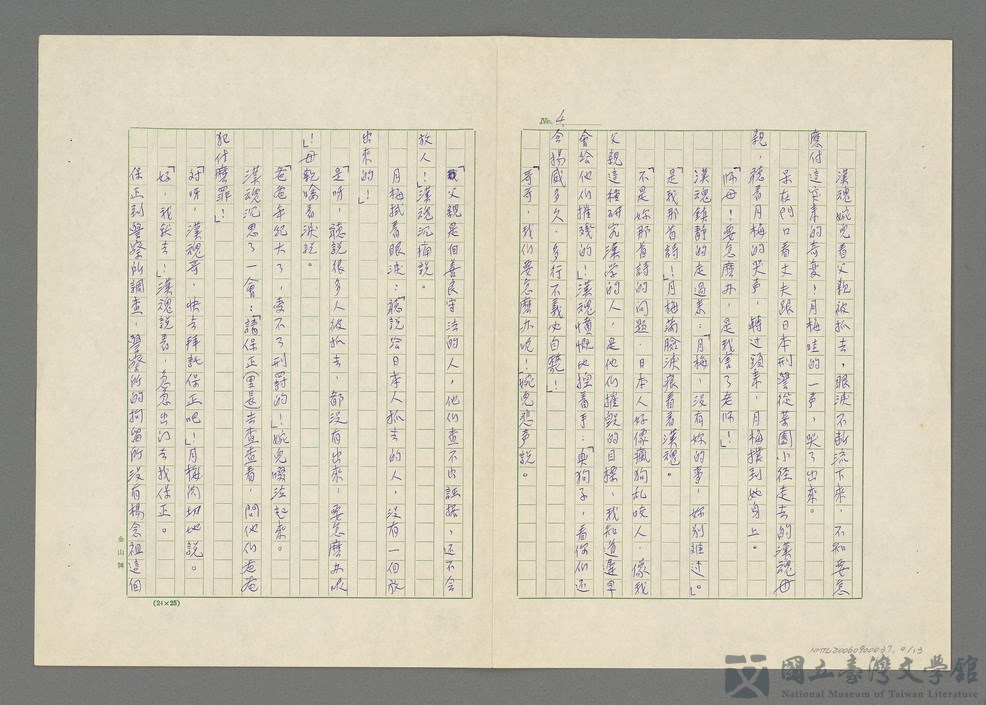 No. 4
漢魂婉兒看父親被抓去，眼淚不斷流下來，不知要怎
應付這突來的奇変！月梅哇的一声，哭了出來。
呆在門口看士夫跟日本刑警從菜園小徑走去的漢魂母
親，聽著月梅的哭声，轉过頭來，月梅撲到她身上。
「師母！要怎麼办，是我害了老师！」
漢魂鎮静的走過來：「月梅，沒有妳的事，妳別难过。」
「是我那首詩！」月梅滿臉淚痕看着漢魂。
「不是妳那首詩的问题，日本人好像瘋狗乱咬人，像我
父親這種研究漢学的人，是他们摧毀的目標，我知道遲早
會給他们摧殘的！」漢魂憤慨地揑着手：「臭狗子，看你们还
令揚威多久，多行不義必自斃！」
「哥哥，我们要怎麼办呢！」婉兒悲声說。
「父親是個善良守法的人，他们查不出証据，还不会
放人！」漢魂沉痛說。
月梅拭着眼淚：「聽說給日本人抓去的人，沒有一個放
出來的！」
「是呀，聽說很多人被抓去，都沒有出來，要怎麼办呢
！」母親噙着淚說。
「爸爸年紀大了，受不了刑罸的！」婉兒啜泣起來。
漢魂沉思了一會：「請保正（里長）去查查看，問他们爸爸
犯什麼罪！」
「对呀，漢魂哥，快去拜託保正吧！」月梅肉切地說。
「好，我就去！」漢魂說着，急急出门去找保正。
保正到警察所調查，警察所的拘留所沒有楊念祖這個
金山牌
(24×25)
NMTL20060900037. 4/13
國立臺灣文學館
National Museum of Taiwan Literature